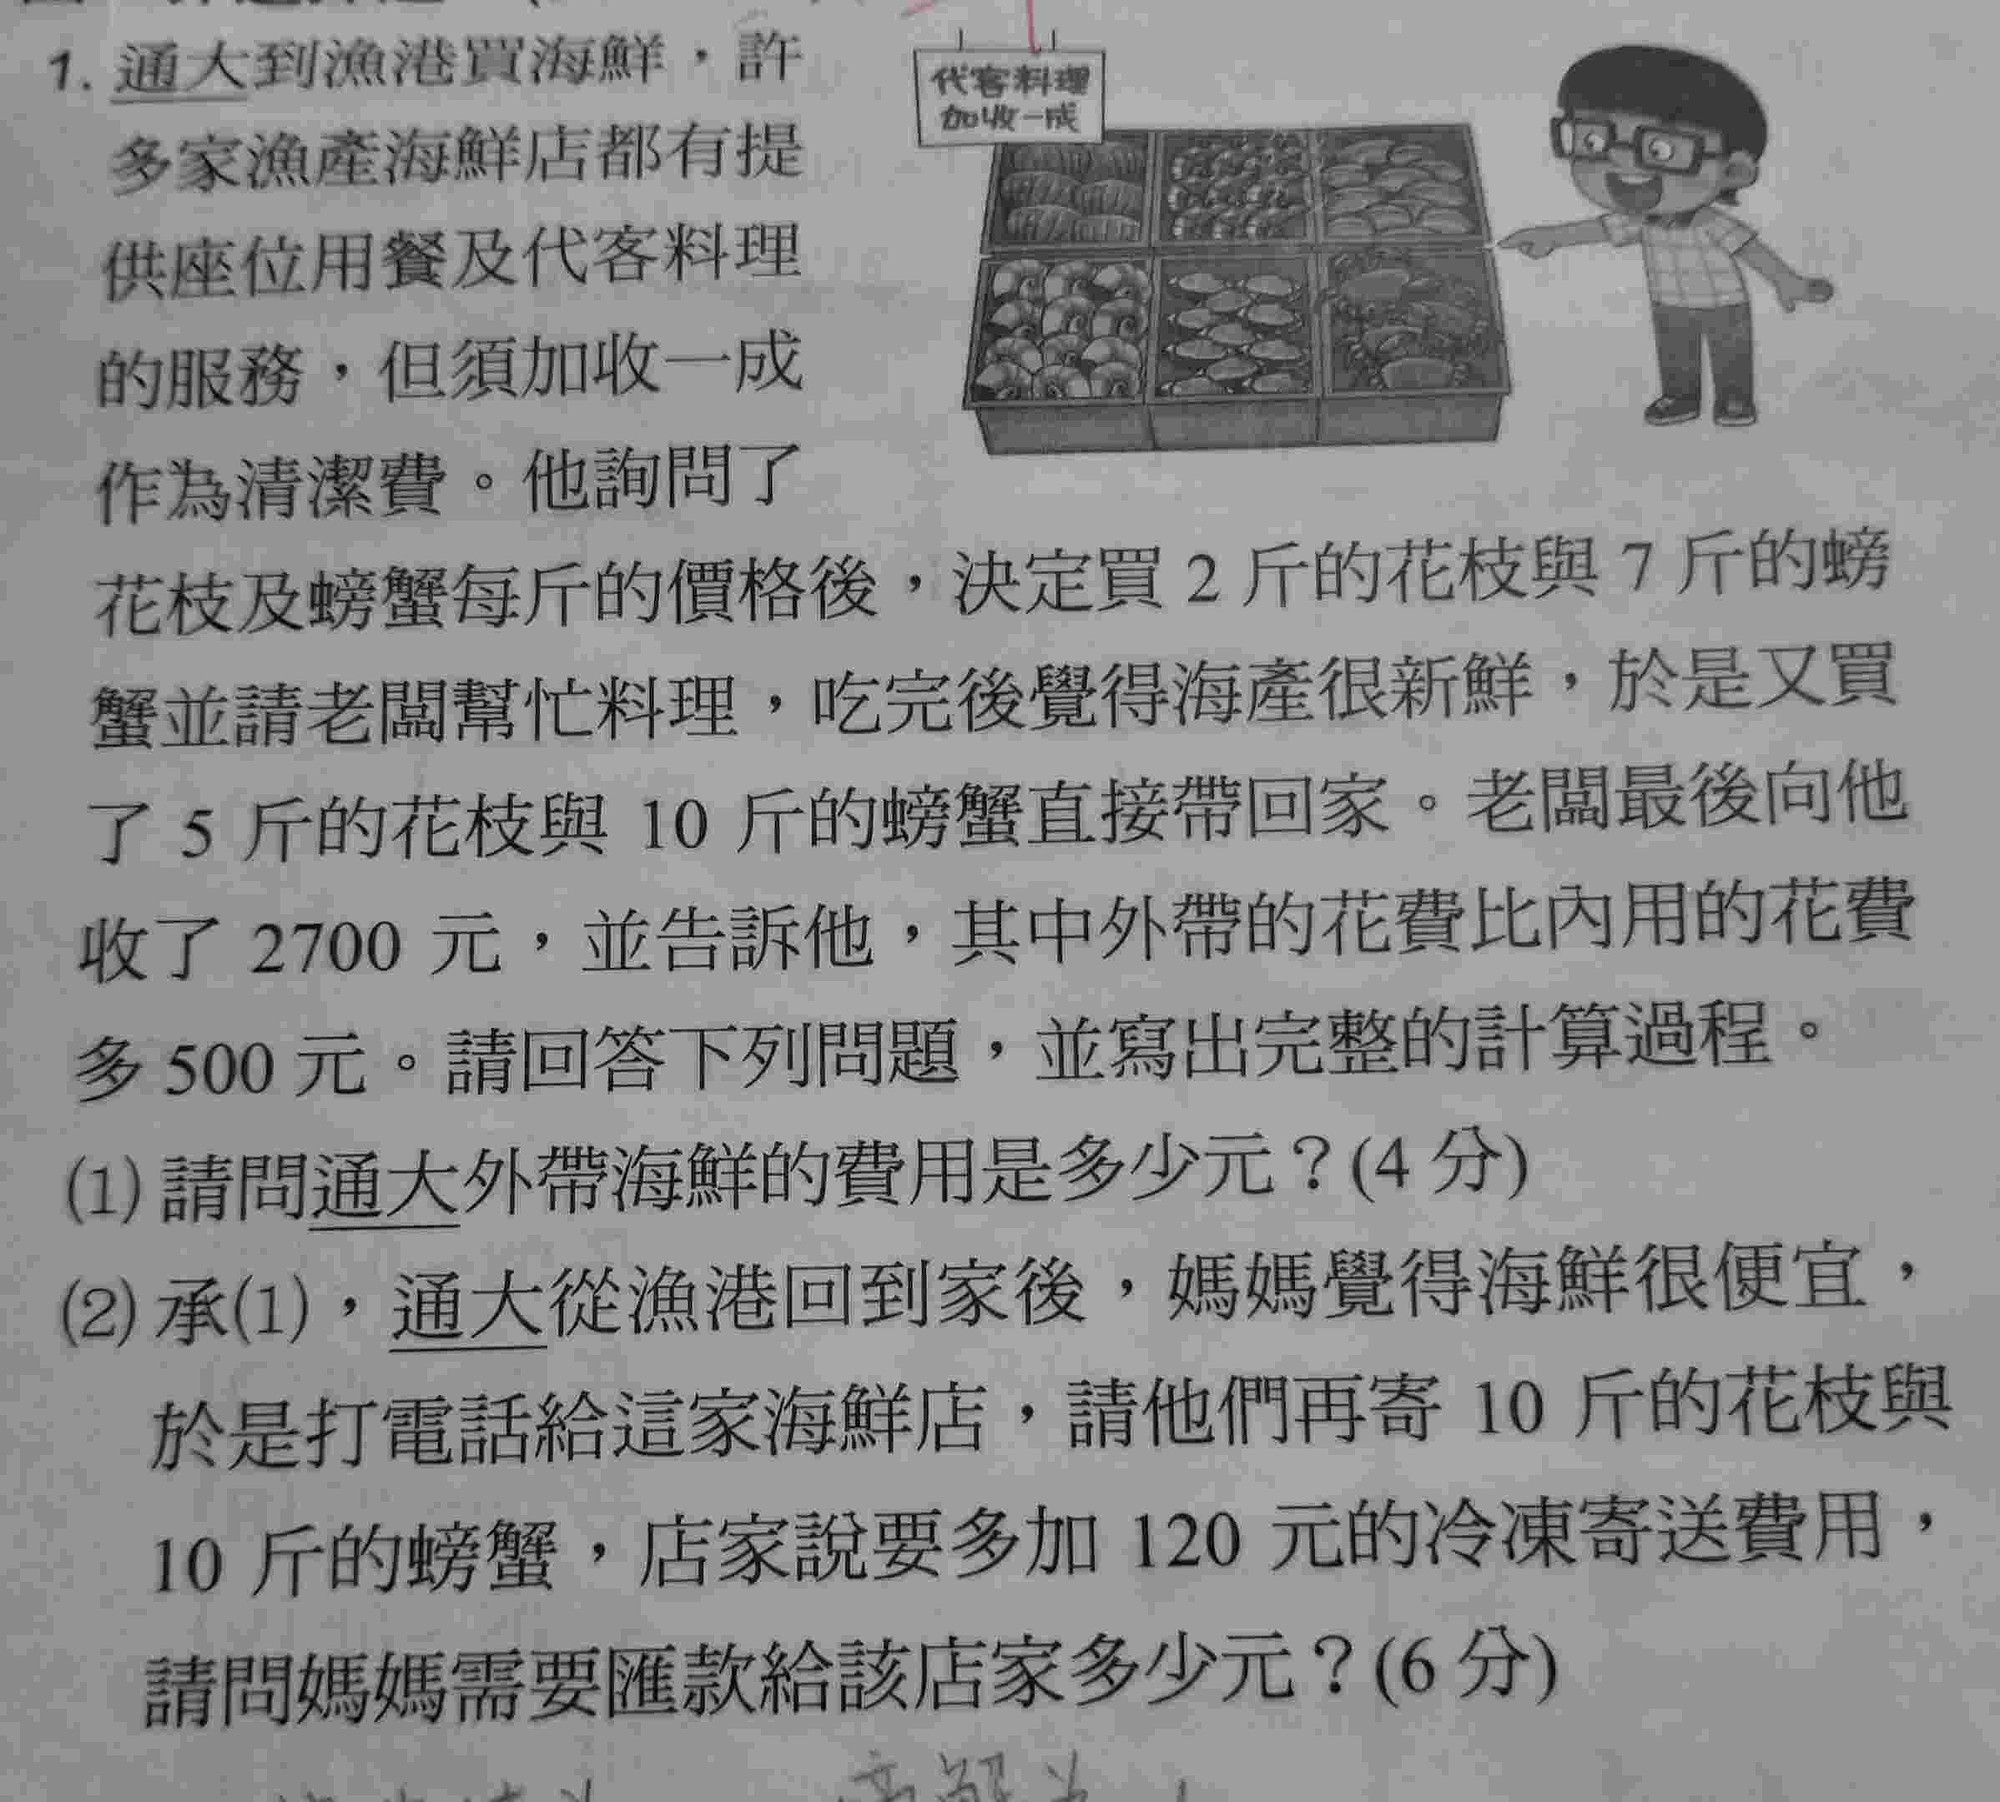 1. 通大到漁港買海鮮，許
代客料理
加收一成
多家漁產海鮮店都有提
供座位用餐及代客料理
的服務，但須加收一成
作為清潔費。他詢問了
花枝及螃蟹每斤的價格後，決定買 2 斤的花枝與 7 斤的螃
蟹並請老闆幫忙料理，吃完後覺得海產很新鮮，於是又買
了 5 斤的花枝與 10 斤的螃蟹直接帶回家。老闆最後向他
收了 2700 元，並告訴他，其中外帶的花費比內用的花費
多 500 元。請回答下列問題，並寫出完整的計算過程。
(1) 請問通大外帶海鮮的費用是多少元？(4 分)
(2) 承(1)，通大從漁港回到家後，媽媽覺得海鮮很便宜，
於是打電話給這家海鮮店，請他們再寄 10 斤的花枝與
10 斤的螃蟹，店家說要多加 120 元的冷凍寄送費用，
請問媽媽需要匯款給該店家多少元？(6 分)